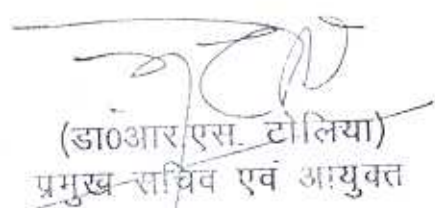 (डा0आर.एस. टोलिया)
प्रमुख सचिव एवं आयुक्त